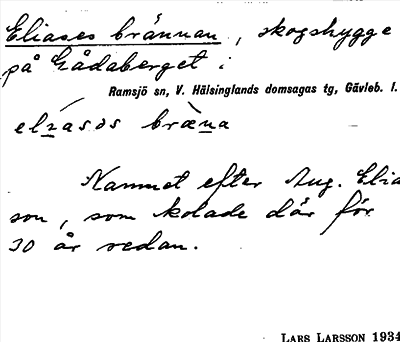 Eliases brännan, skogshygge
på Gådaberget i
Ramsjö sn, V. Hälsinglands domsagas tg, Gävleb. l.
eliasəs bræna
Namnet efter Aug. Elia
son, som kolade där för
30 år sedan.
LARS LARSSON 1934